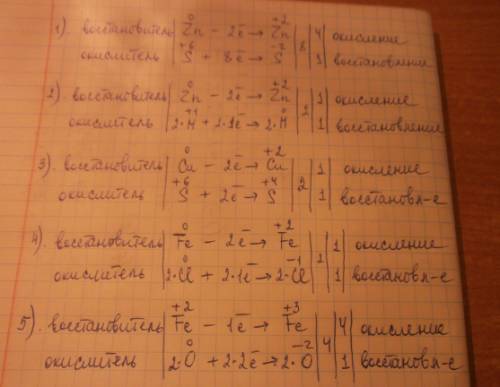 1). восстановитель | Zn⁰ − 2ē → Zn⁺² | 8 | 4 | окисление
окислитель | S⁺⁶ + 8ē → S⁻² | 1 | восстановление
2). восстановитель | Zn⁰ − 2ē → Zn⁺² | 2 | 1 | окисление
окислитель | 2·H⁺¹ + 2·1ē → 2·H⁰ | 1 | восстановление
3). восстановитель | Cu⁰ − 2ē → Cu⁺² | 2 | 1 | окисление
окислитель | S⁺⁶ + 2ē → S⁺⁴ | 1 | восстановл-е
4). восстановитель | Fe⁰ − 2ē → Fe⁺² | 2 | 1 | окисление
окислитель | 2·Cl⁰ + 2·1ē → 2·Cl⁻¹ | 1 | восстановл-е
5). восстановитель | Fe⁺² − 1ē → Fe⁺³ | 4 | 4 | окисление
окислитель | 2·O⁰ + 2·2ē → 2·O⁻² | 1 | восстановл-е